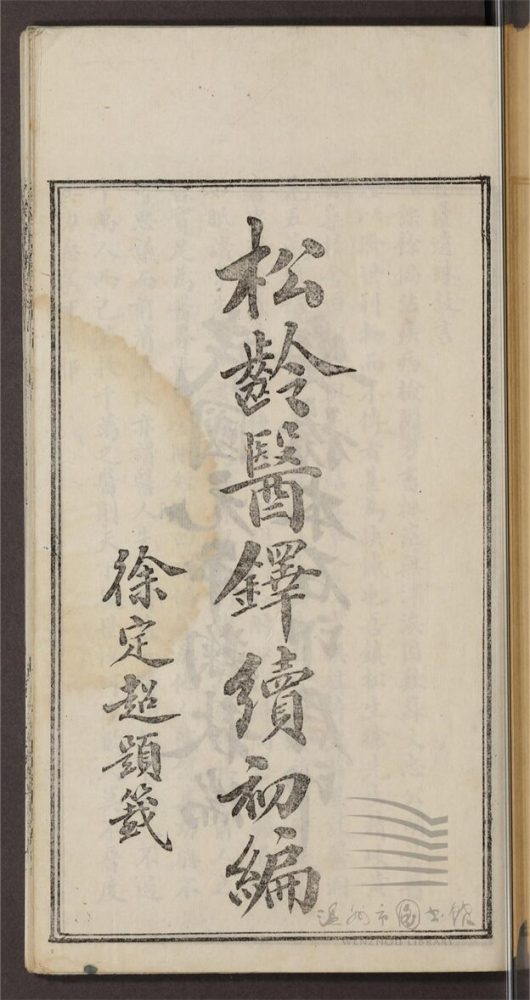 松齡醫鐸續初編
徐定超題籤
温州市图书馆
WENZHOU LIBRARY